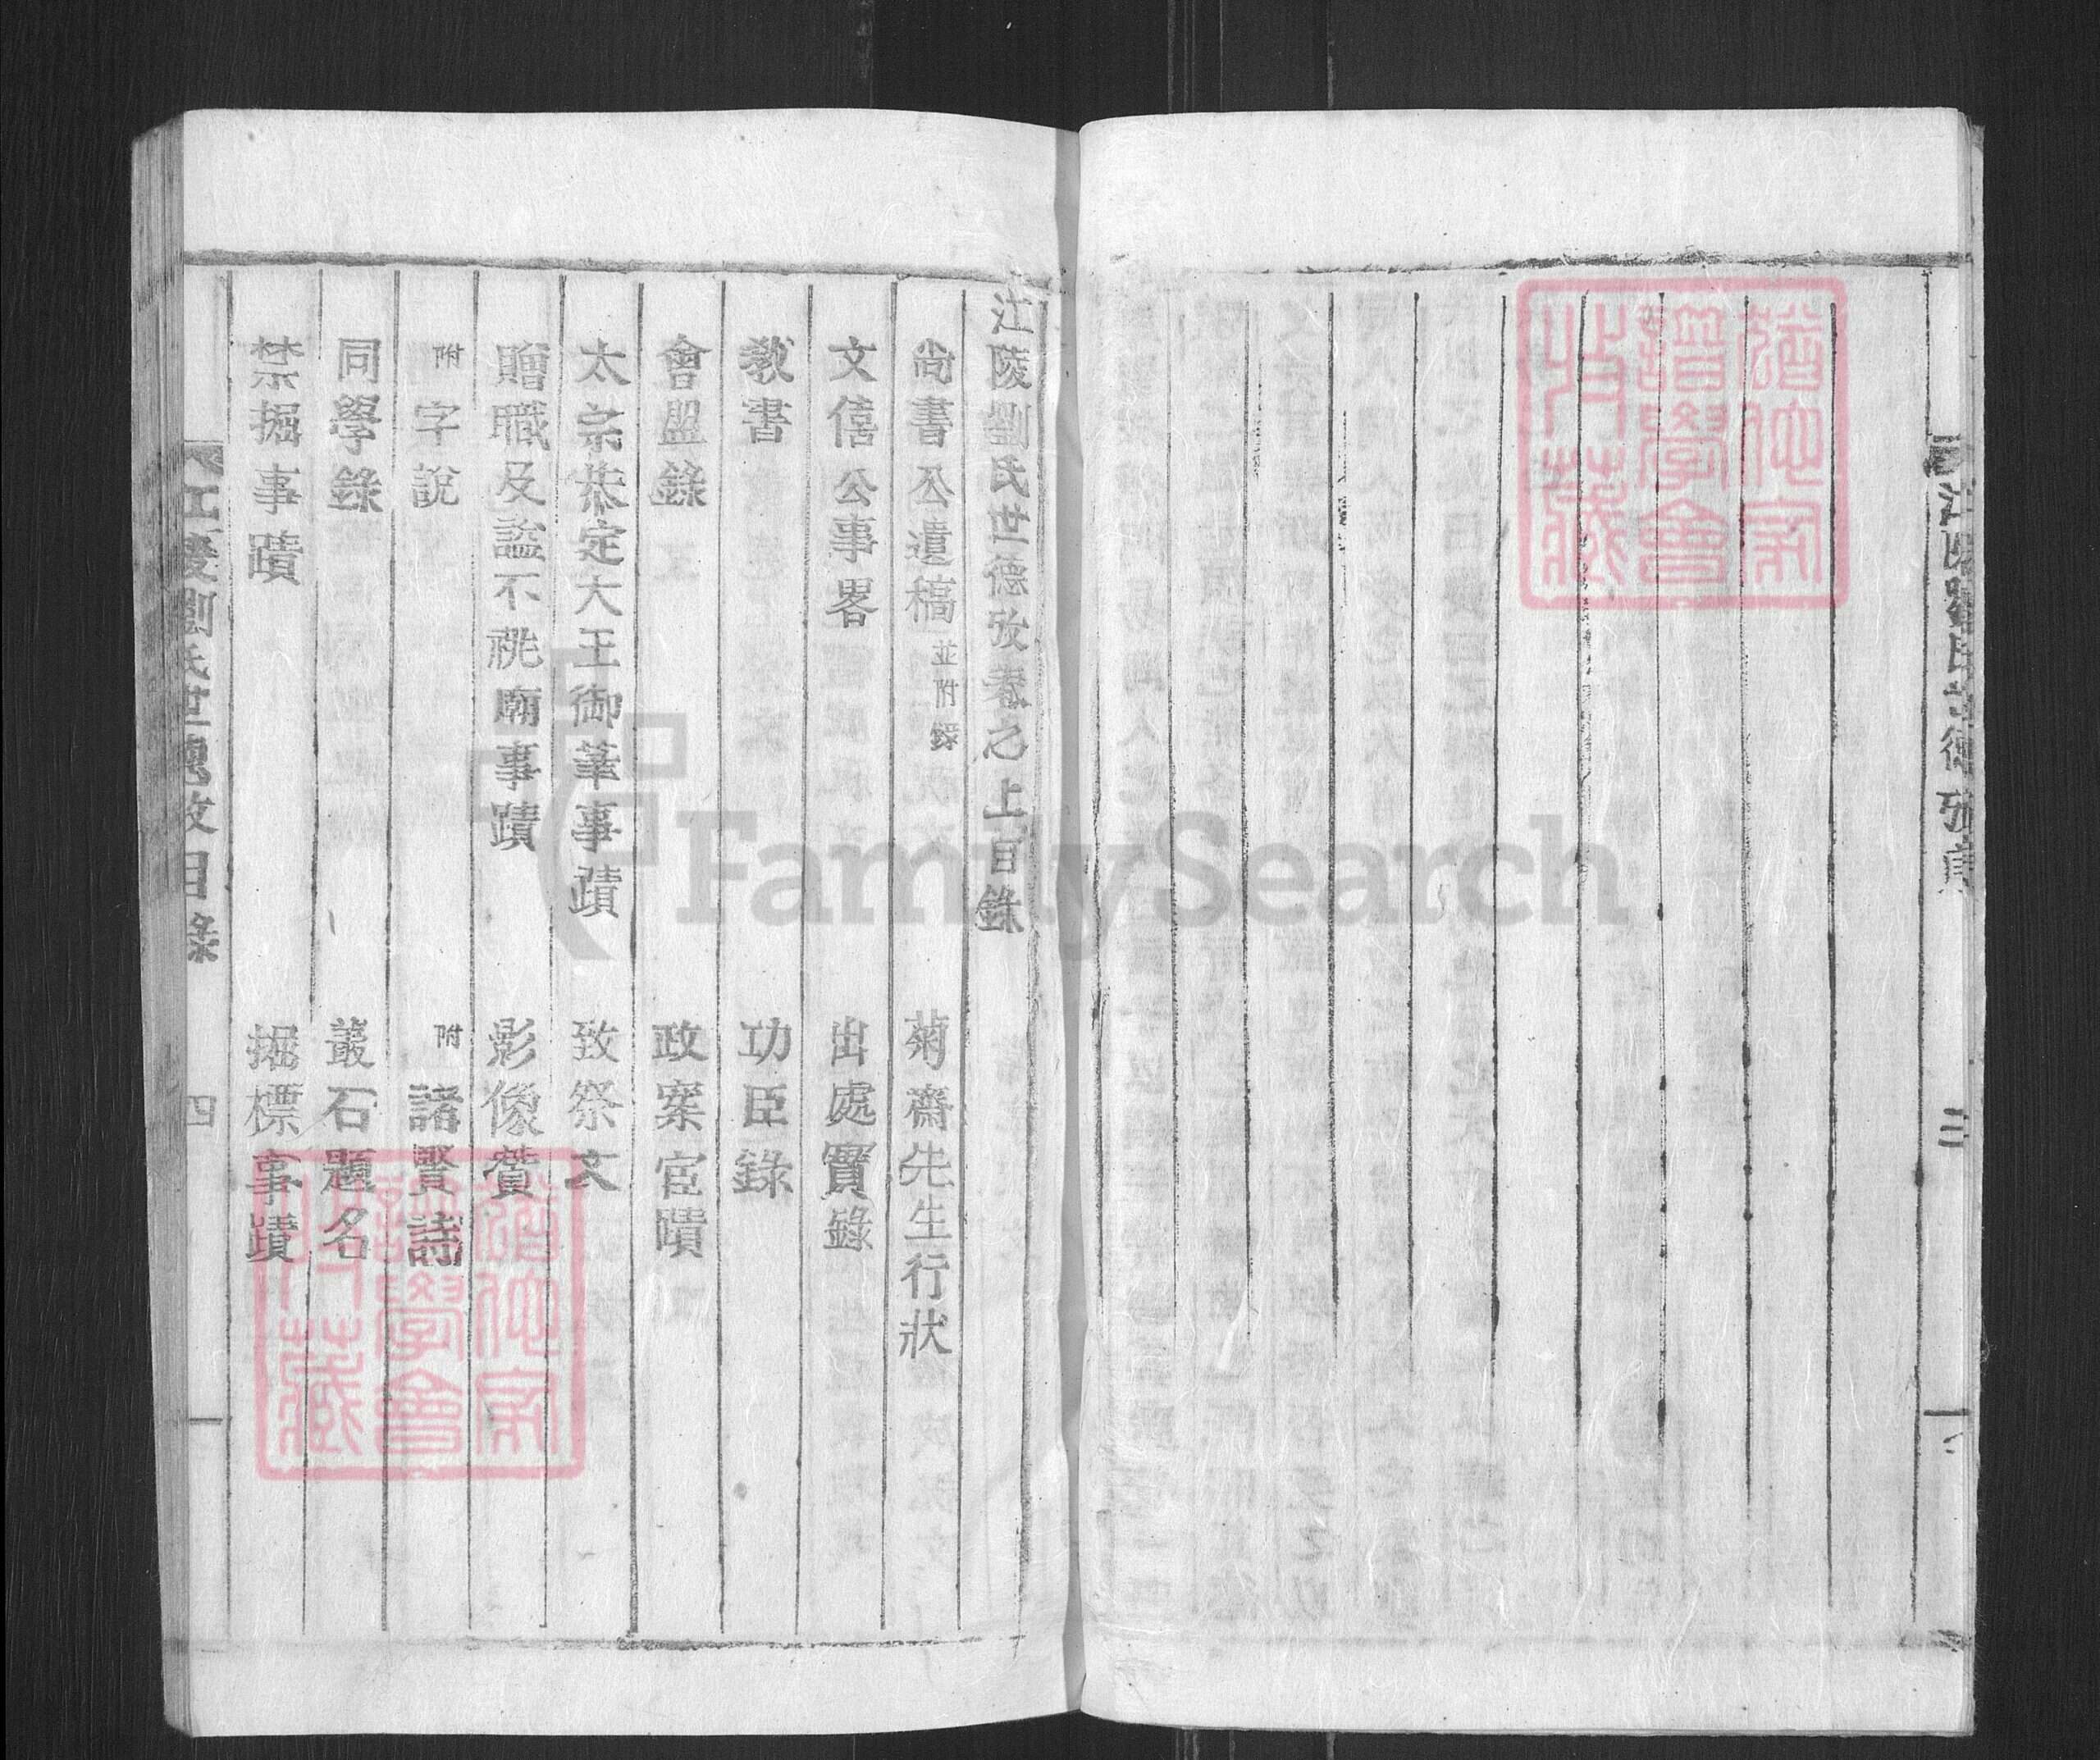 江陵劉氏世德攷序 三
江陵劉氏世德攷卷之上目錄
尚書公遺稿 並附錄 菊齋先生行狀
文僖公事畧 出處實錄
敎書 功臣錄
會盟錄 政案宦蹟
太宗恭定大王御華事蹟 致祭文
贈職及諡不祧廟事蹟 影像贊
附 字說 附 諸賢詩
同學錄 叢石題名
禁掘事蹟 掘標事蹟
江陵劉氏世德攷目錄 四
譜學會
所藏
FamilySearch